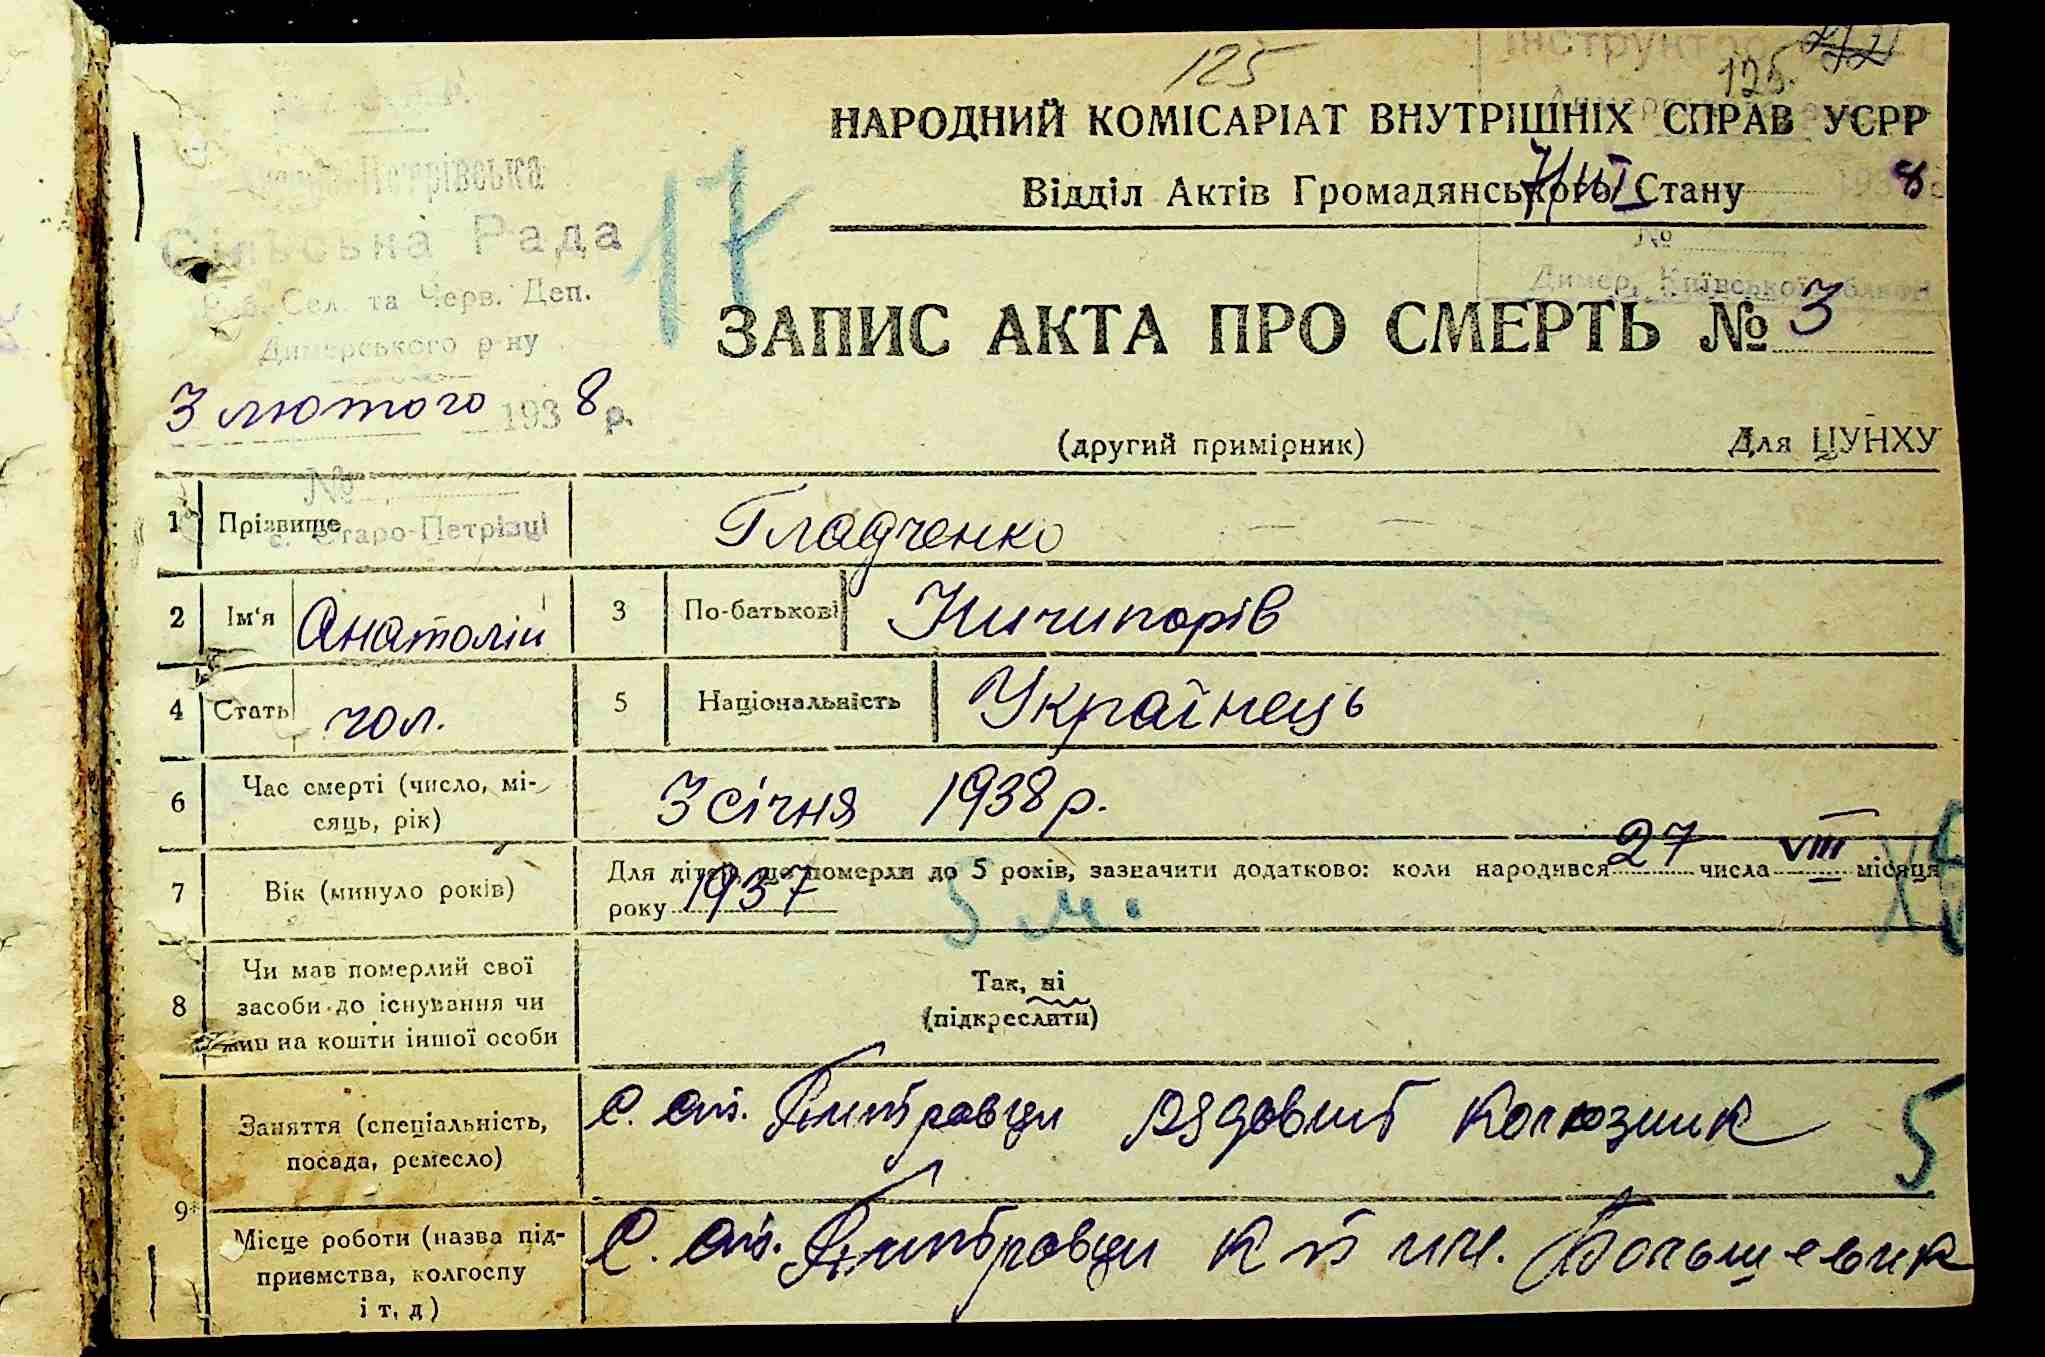 125
125.
НАРОДНИЙ КОМІСАРІАТ ВНУТРІШНІХ СПРАВ УСРР
Відділ Актів Громадянського Стану
7/III 1938
Петрівська
Сільська Рада
Роб. Сел. та Черв. Деп.
Димерського р-ну
17
№
Димер, Київської області
ЗАПИС АКТА ПРО СМЕРТЬ № 3
3 лютого 1938 р.
(другий примірник)
Для ЦУНХУ
№
с. Старо-Петрівці
1 Прізвище Гладченко
2 Ім'я Анатолій 3 По-батькові Ничипорів
4 Стать чол. 5 Національність Українець
6 Час смерті (число, мі-
сяць, рік) 3 січня 1938 р.
7 Вік (минуло років) Для дітей, що померли до 5 років, зазначити додатково: коли народився 27 числа VIII місяця
року 1937 5 м.
8 Чи мав померлий свої
засоби до існування чи
жив на кошти іншої особи
Так, ні
(підкреслити)
9* Заняття (спеціальність,
посада, ремесло)
с. ст. Петровци рядовий колгозник 5
Місце роботи (назва під-
приємства, колгоспу
і т. д)
с. ст. Петровци к г им. Большевик